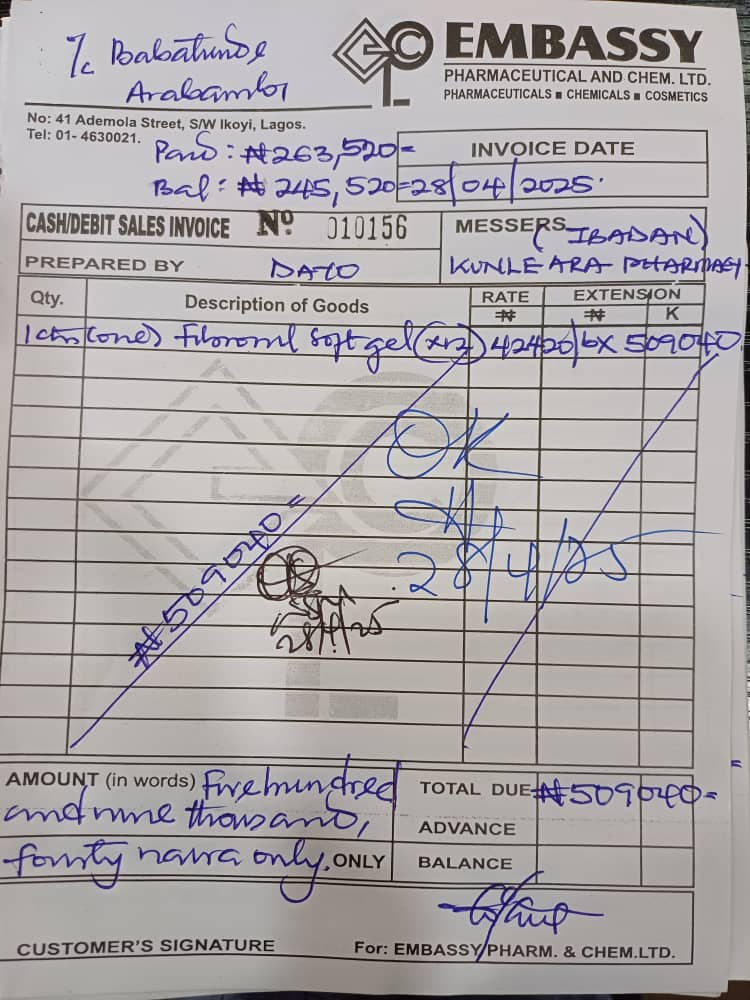 ℅ Babatunde
Arabambi
EMBASSY
PHARMACEUTICAL AND CHEM. LTD.
PHARMACEUTICALS ■ CHEMICALS ■ COSMETICS
No: 41 Ademola Street, S/W Ikoyi, Lagos.
Tel: 01- 4630021.
Paid: ₦263,520=
INVOICE DATE
Bal: ₦245,520=
28/04/2025.
CASH/DEBIT SALES INVOICE Nº 010156
MESSERS (IBADAN)
PREPARED BY DATO
KUNLE ARA PHARMACY
Qty. Description of Goods RATE ₦ EXTENSION ₦ K
1ctn (one) soft gel (x12) 42420/bx 509040
OK
28/4/25
₦509040=
28/4/25
AMOUNT (in words) Five hundred
and nine thousand,
fourty naira only. ONLY
TOTAL DUE ₦509040=
ADVANCE
BALANCE
CUSTOMER'S SIGNATURE
For: EMBASSY PHARM. & CHEM.LTD.